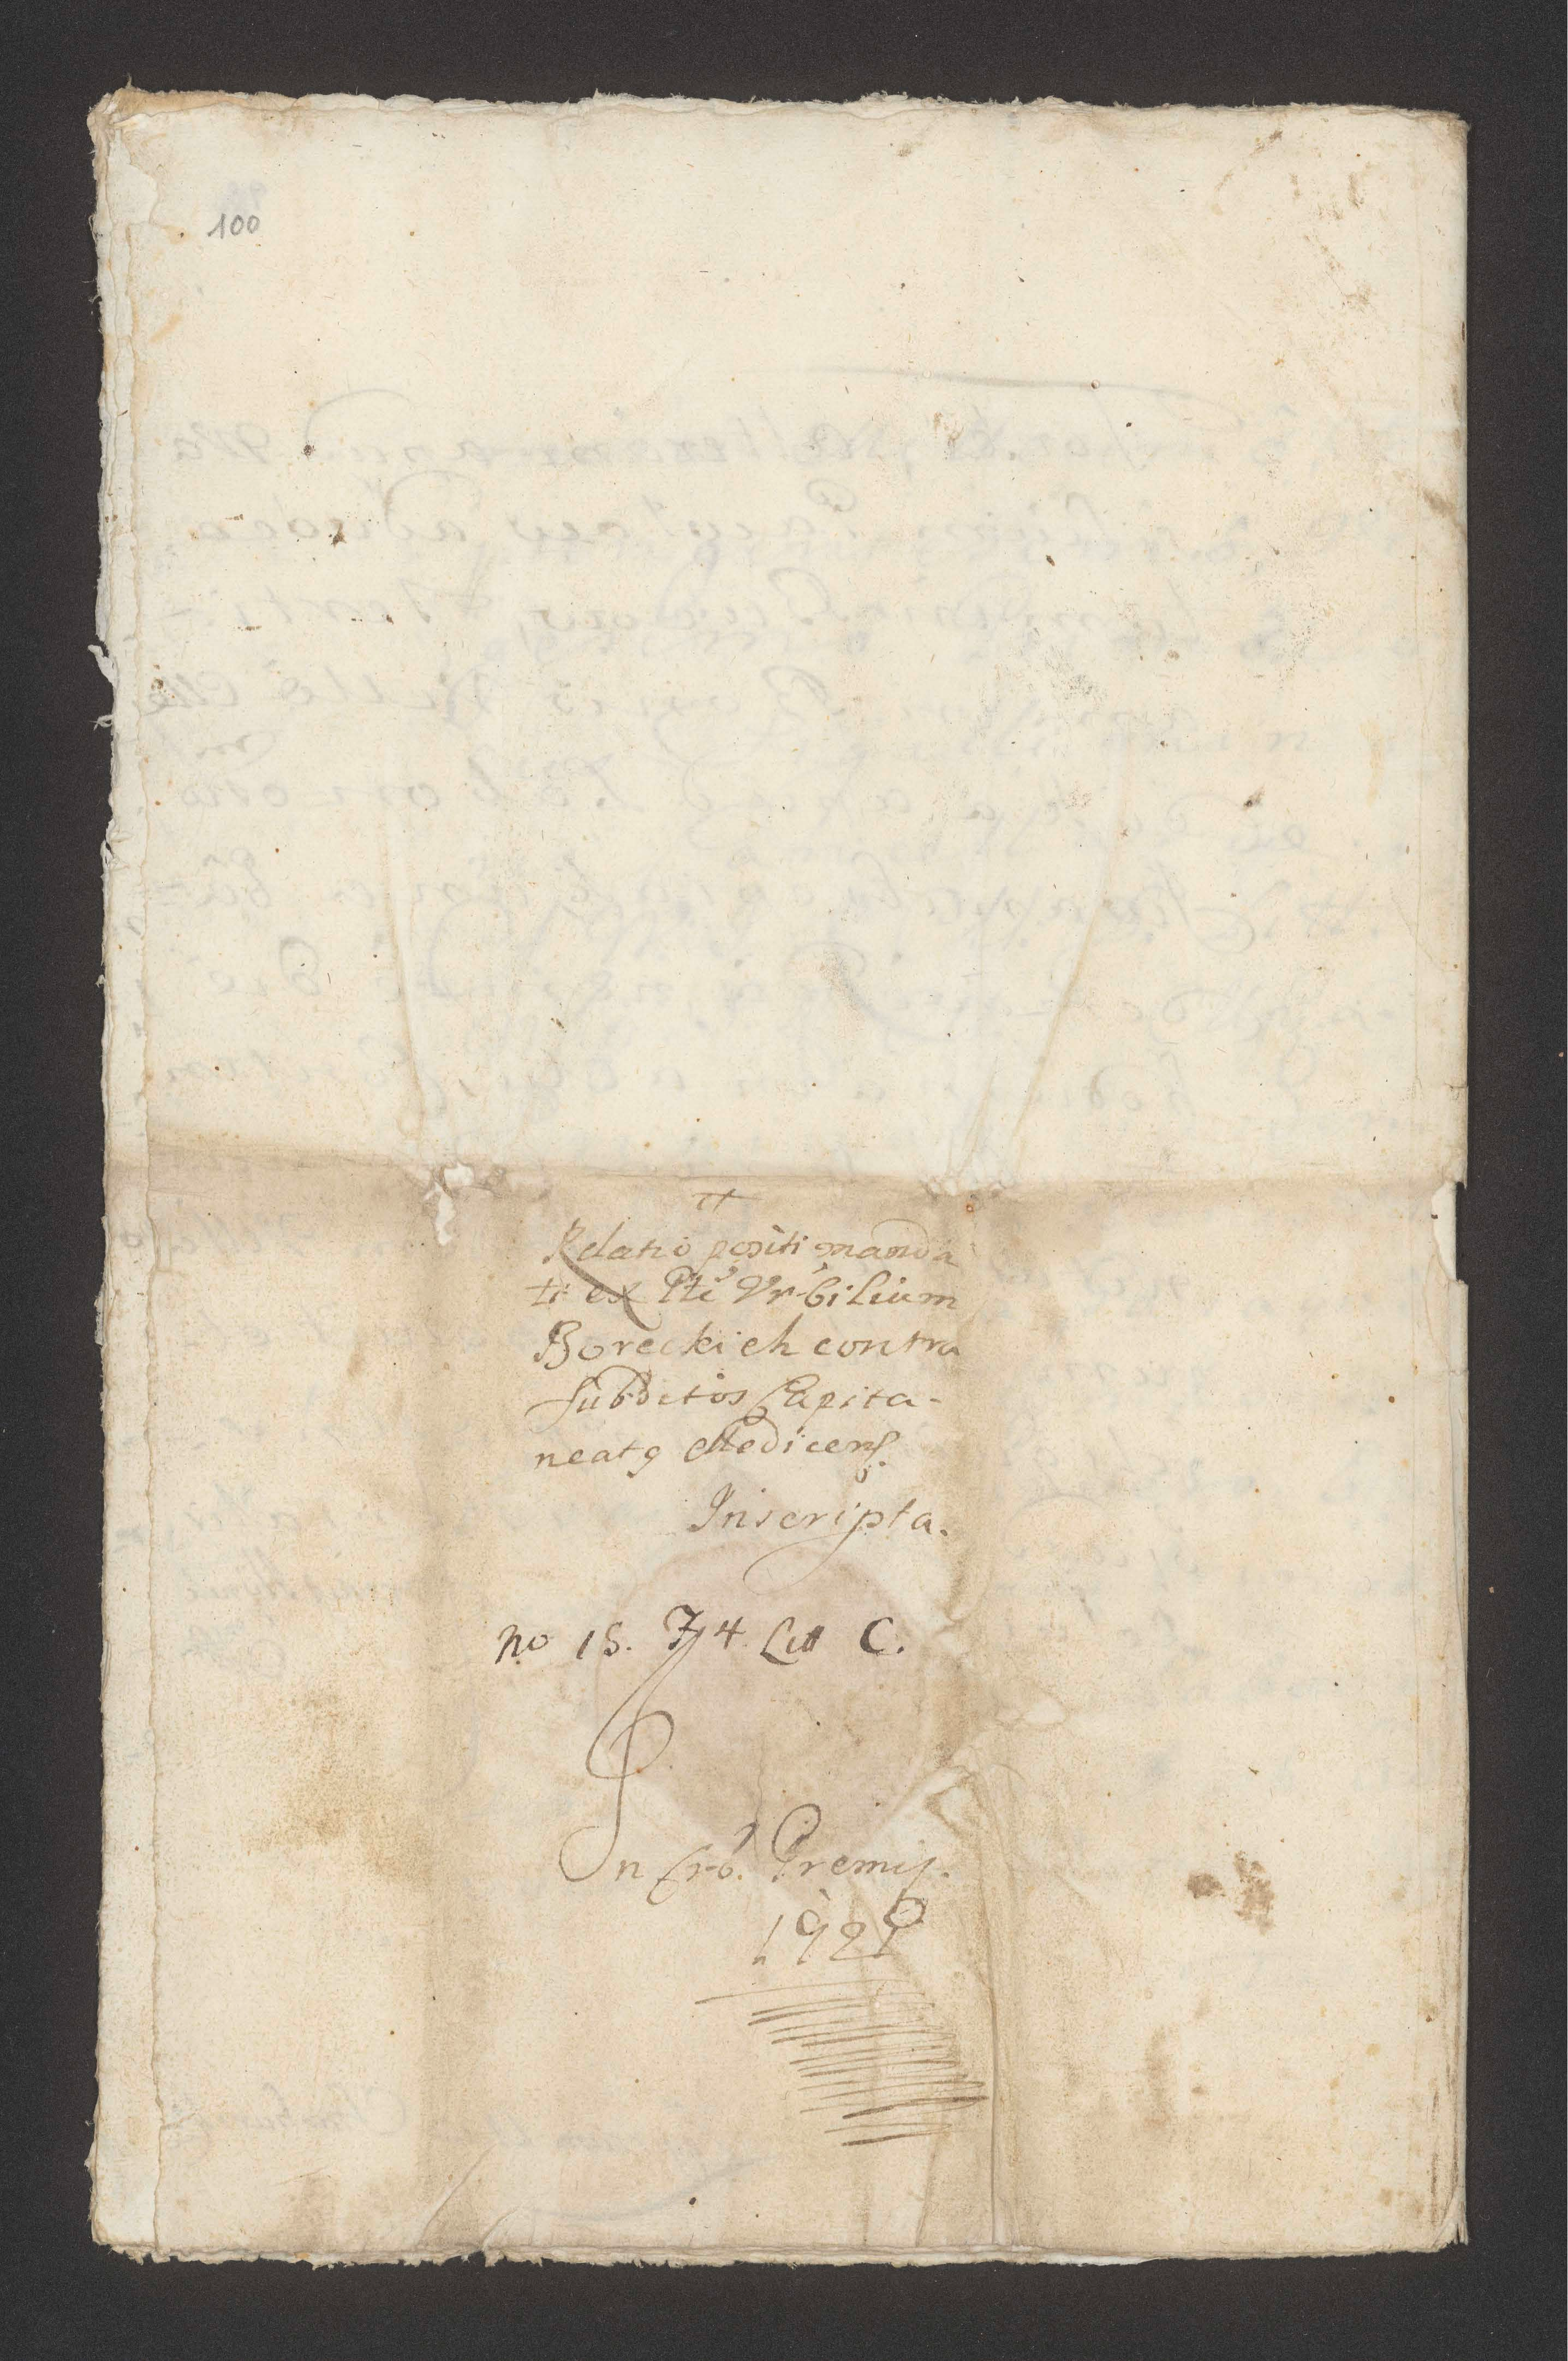 100
Relatio positi manda
ti ex Pte Nobilium
Boreckich contra
subditos Capita-
neatq Medicens.
Inscripta.
No 15. F 4. Litt C.
In Crō. Premis.